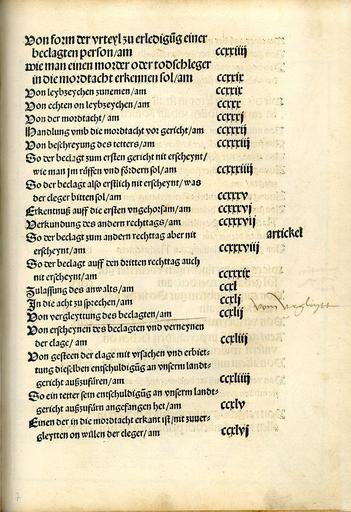 Von form der vrteyl zu erledigūg einer
beclagten person/am ccxxiiij
wie man einen morder oder todschleger
in die mordtacht erkennen sol/am ccxxix
Von leybzeychen zunemen/am ccxxix
Von echten on leybzeychen/am ccxxx
Von der mordtacht/am ccxxxj
Handlung vmb die mordtacht vor gericht/am ccxxxij
Von beschreyung des tetters/am ccxxxiij
So der beclagt zum ersten gericht nit erscheynt/
wie man jm rüffen vnd fördern sol/am ccxxxiiij
So der beclagt also erstlich nit erscheynt/was
der cleger bitten sol/am ccxxxv
Erkentnuß auff die ersten vngehorsam/am ccxxxvj
Verkundung des andern rechttags/am ccxxxvij
So der beclagt zum andern rechttag aber nit artickel
erscheynt/am ccxxxviij
So der beclagt auff den dritten rechttag auch
nit erscheynt/am ccxxxix
Zulassung des anwalts/am ccxl
In die acht zu sprechen/am ccxlj
Von vergleyttung des beclagten/am ccxlij
Von erscheynen des beclagten vnd verneynen
der clage/am ccxliij
Von gesteen der clage mit vrsachen vnd erbiet-
tung dieselben entschuldigūg an vnserm landt-
gericht außzufüren/am ccxliiij
So ein tetter sein entschuldigūg an vnserm landt-
gericht außzufürn angefangen het/am ccxlv
Einen der in die mordtacht erkant ist/mit zuuer-
gleytten on willen der cleger/am ccxlvj
7